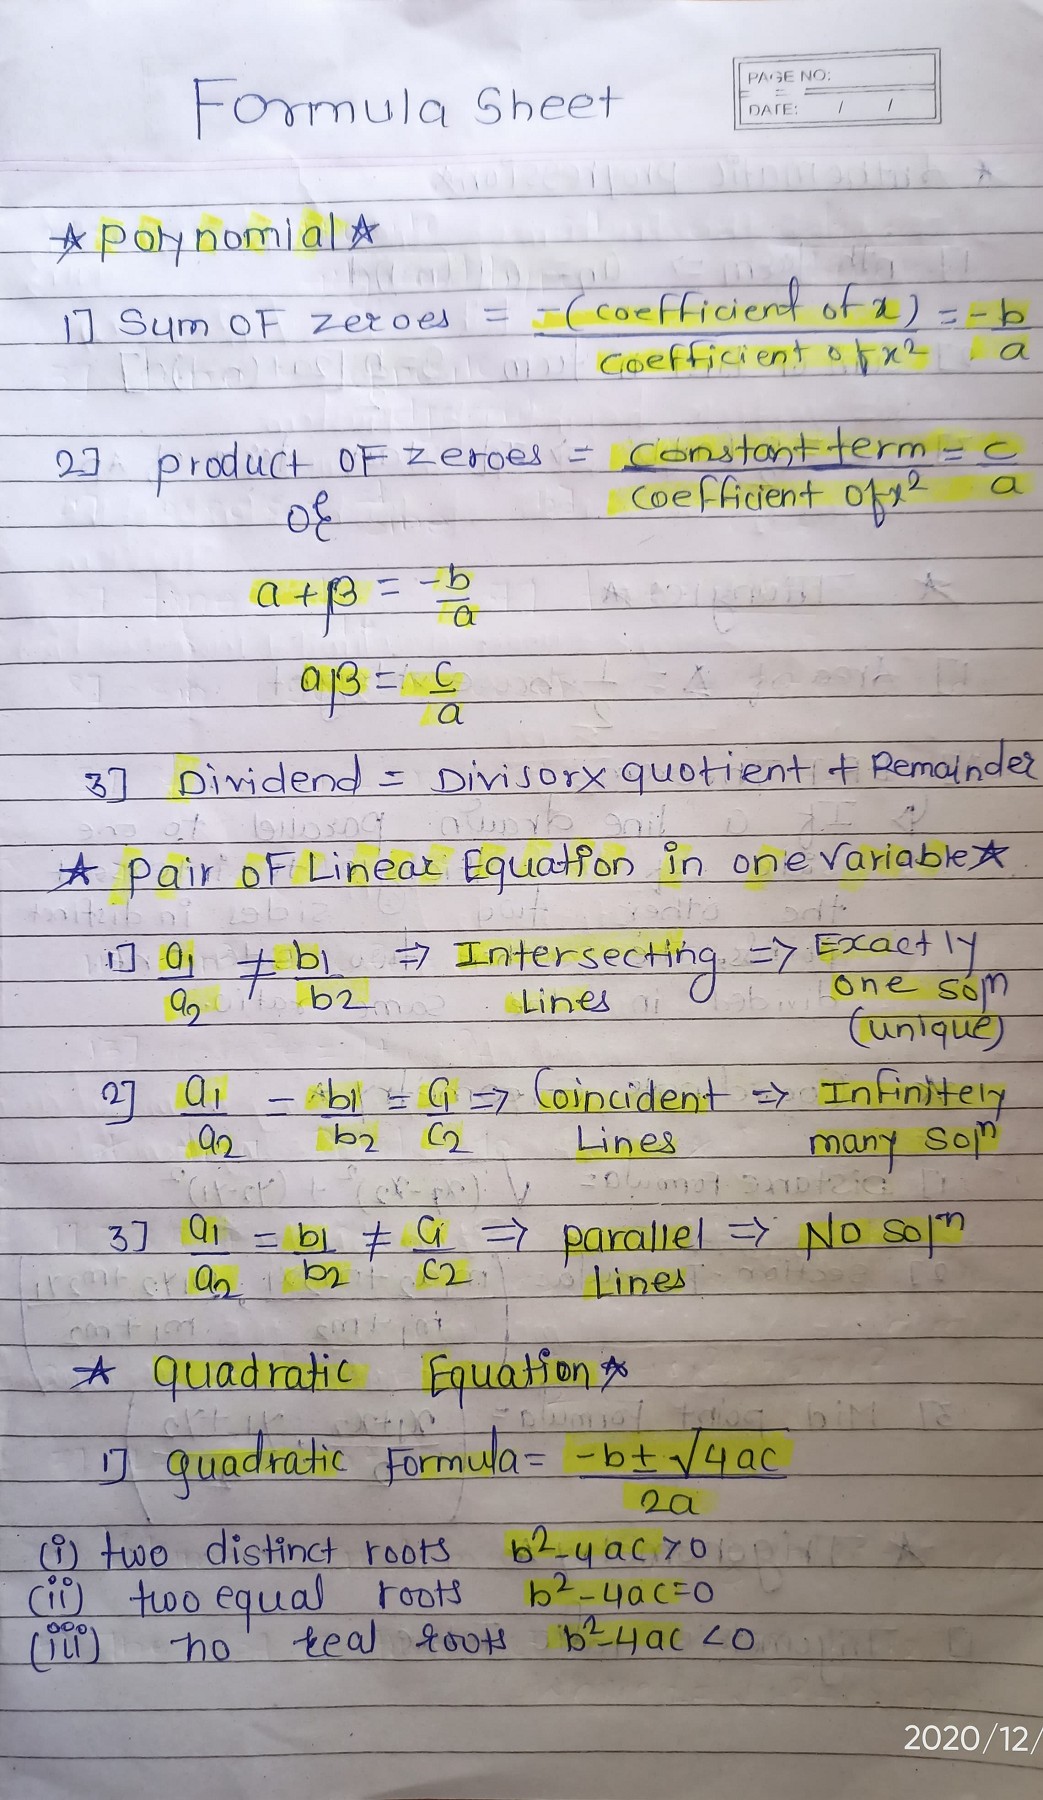 Formula Sheet
PAGE NO:
DATE: / /
☆ Polynomial ☆
1] Sum OF zeroes = -(coefficient of x) / coefficient of x² = -b/a
2] product OF zeroes = constant term / coefficient of x² = c/a
OR
a+β = -b/a
aβ = c/a
3] Dividend = Divisor x quotient + Remainder
☆ Pair OF Linear Equation in one Variable ☆
1] a1/a2 ≠ b1/b2 => Intersecting Lines => Exactly one solⁿ (unique)
2] a1/a2 = b1/b2 = c1/c2 => Coincident Lines => Infinitely many solⁿ
3] a1/a2 = b1/b2 ≠ c1/c2 => parallel Lines => No solⁿ
☆ quadratic Equation ☆
1] quadratic Formula = -b±√4ac / 2a
(i) two distinct roots b²-4ac>0
(ii) two equal roots b²-4ac=0
(iii) no real roots b²-4ac<0
2020/12/